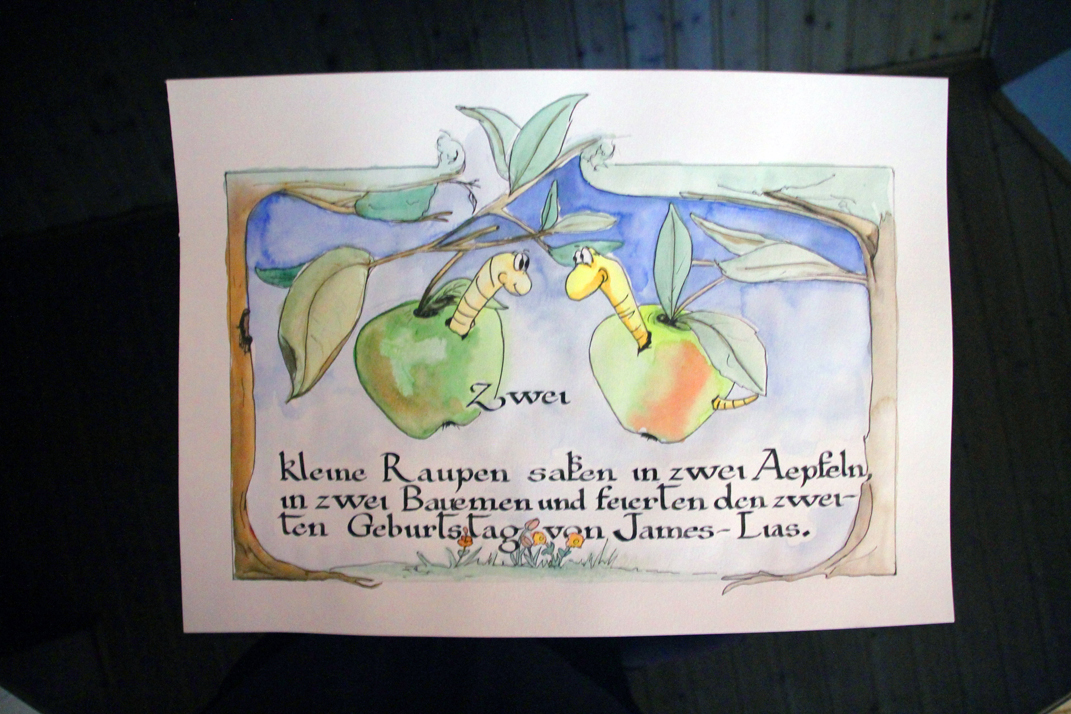 Zwei
kleine Raupen saßen in zwei Aepfeln,
in zwei Bauemen und feierten den zwei-
ten Geburtstag von James-Lias.